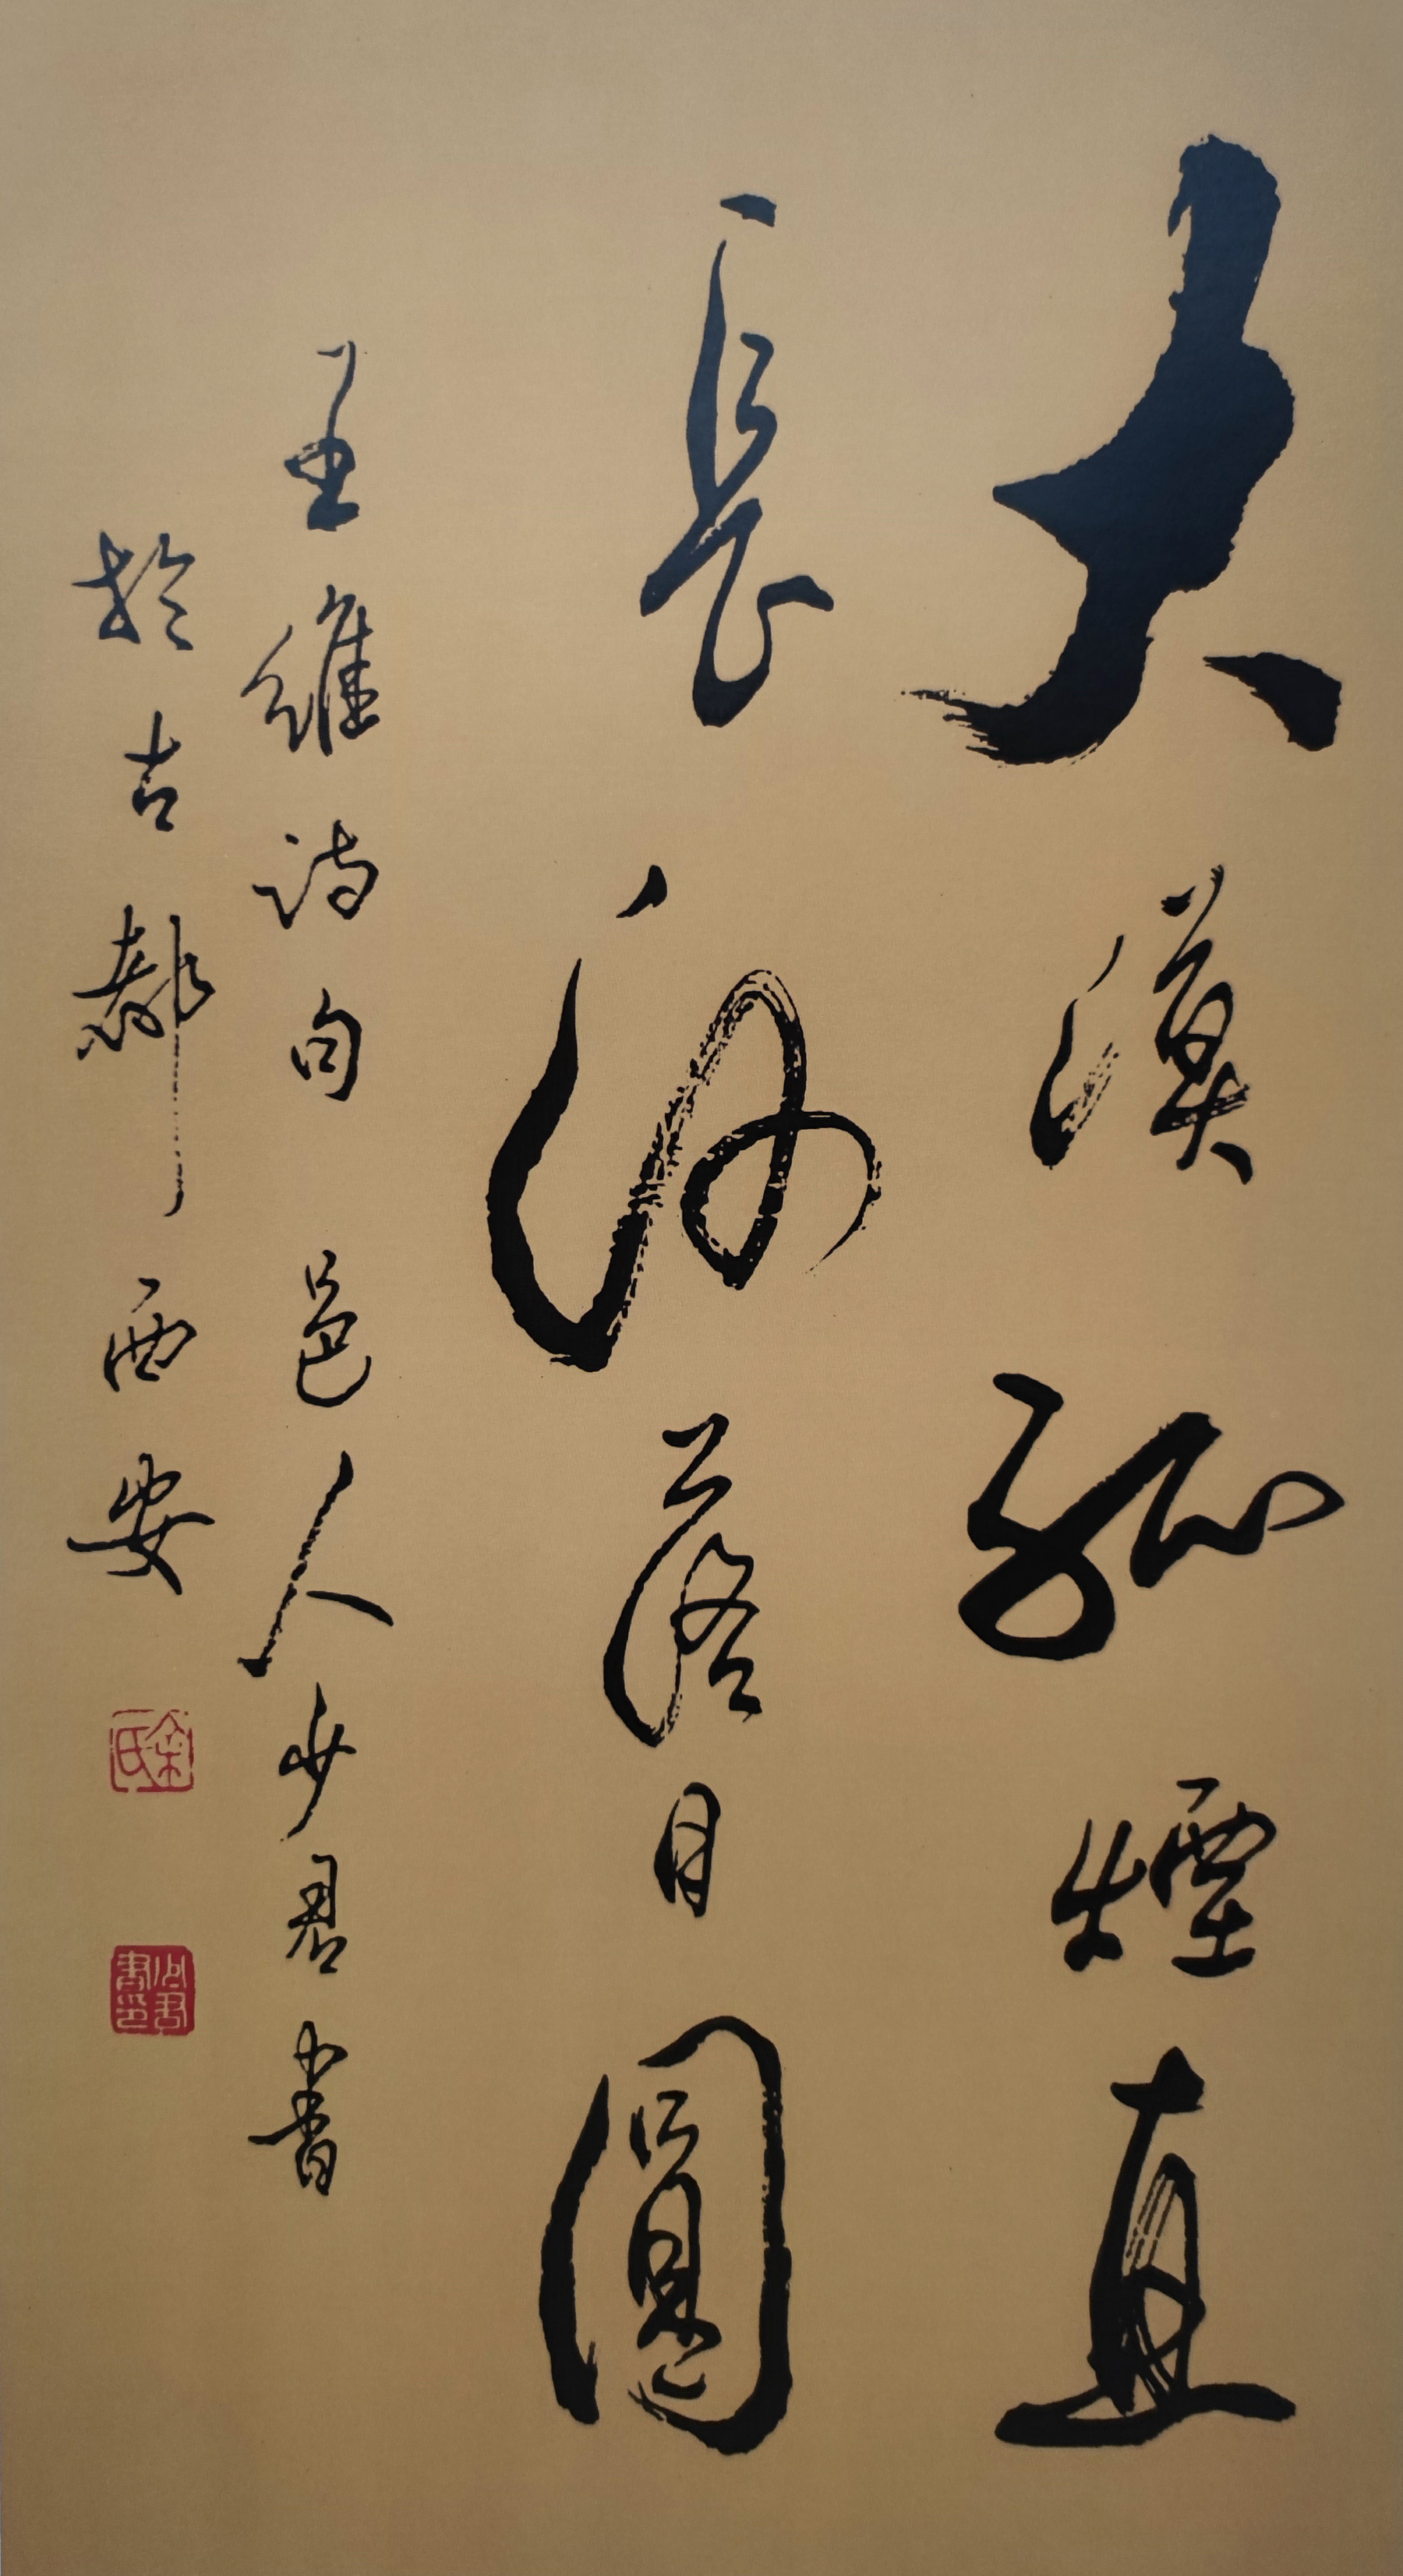 大漠孤煙直
長河落日圓
王維詩句邑人少君書
於古都西安
余氏
少君書印